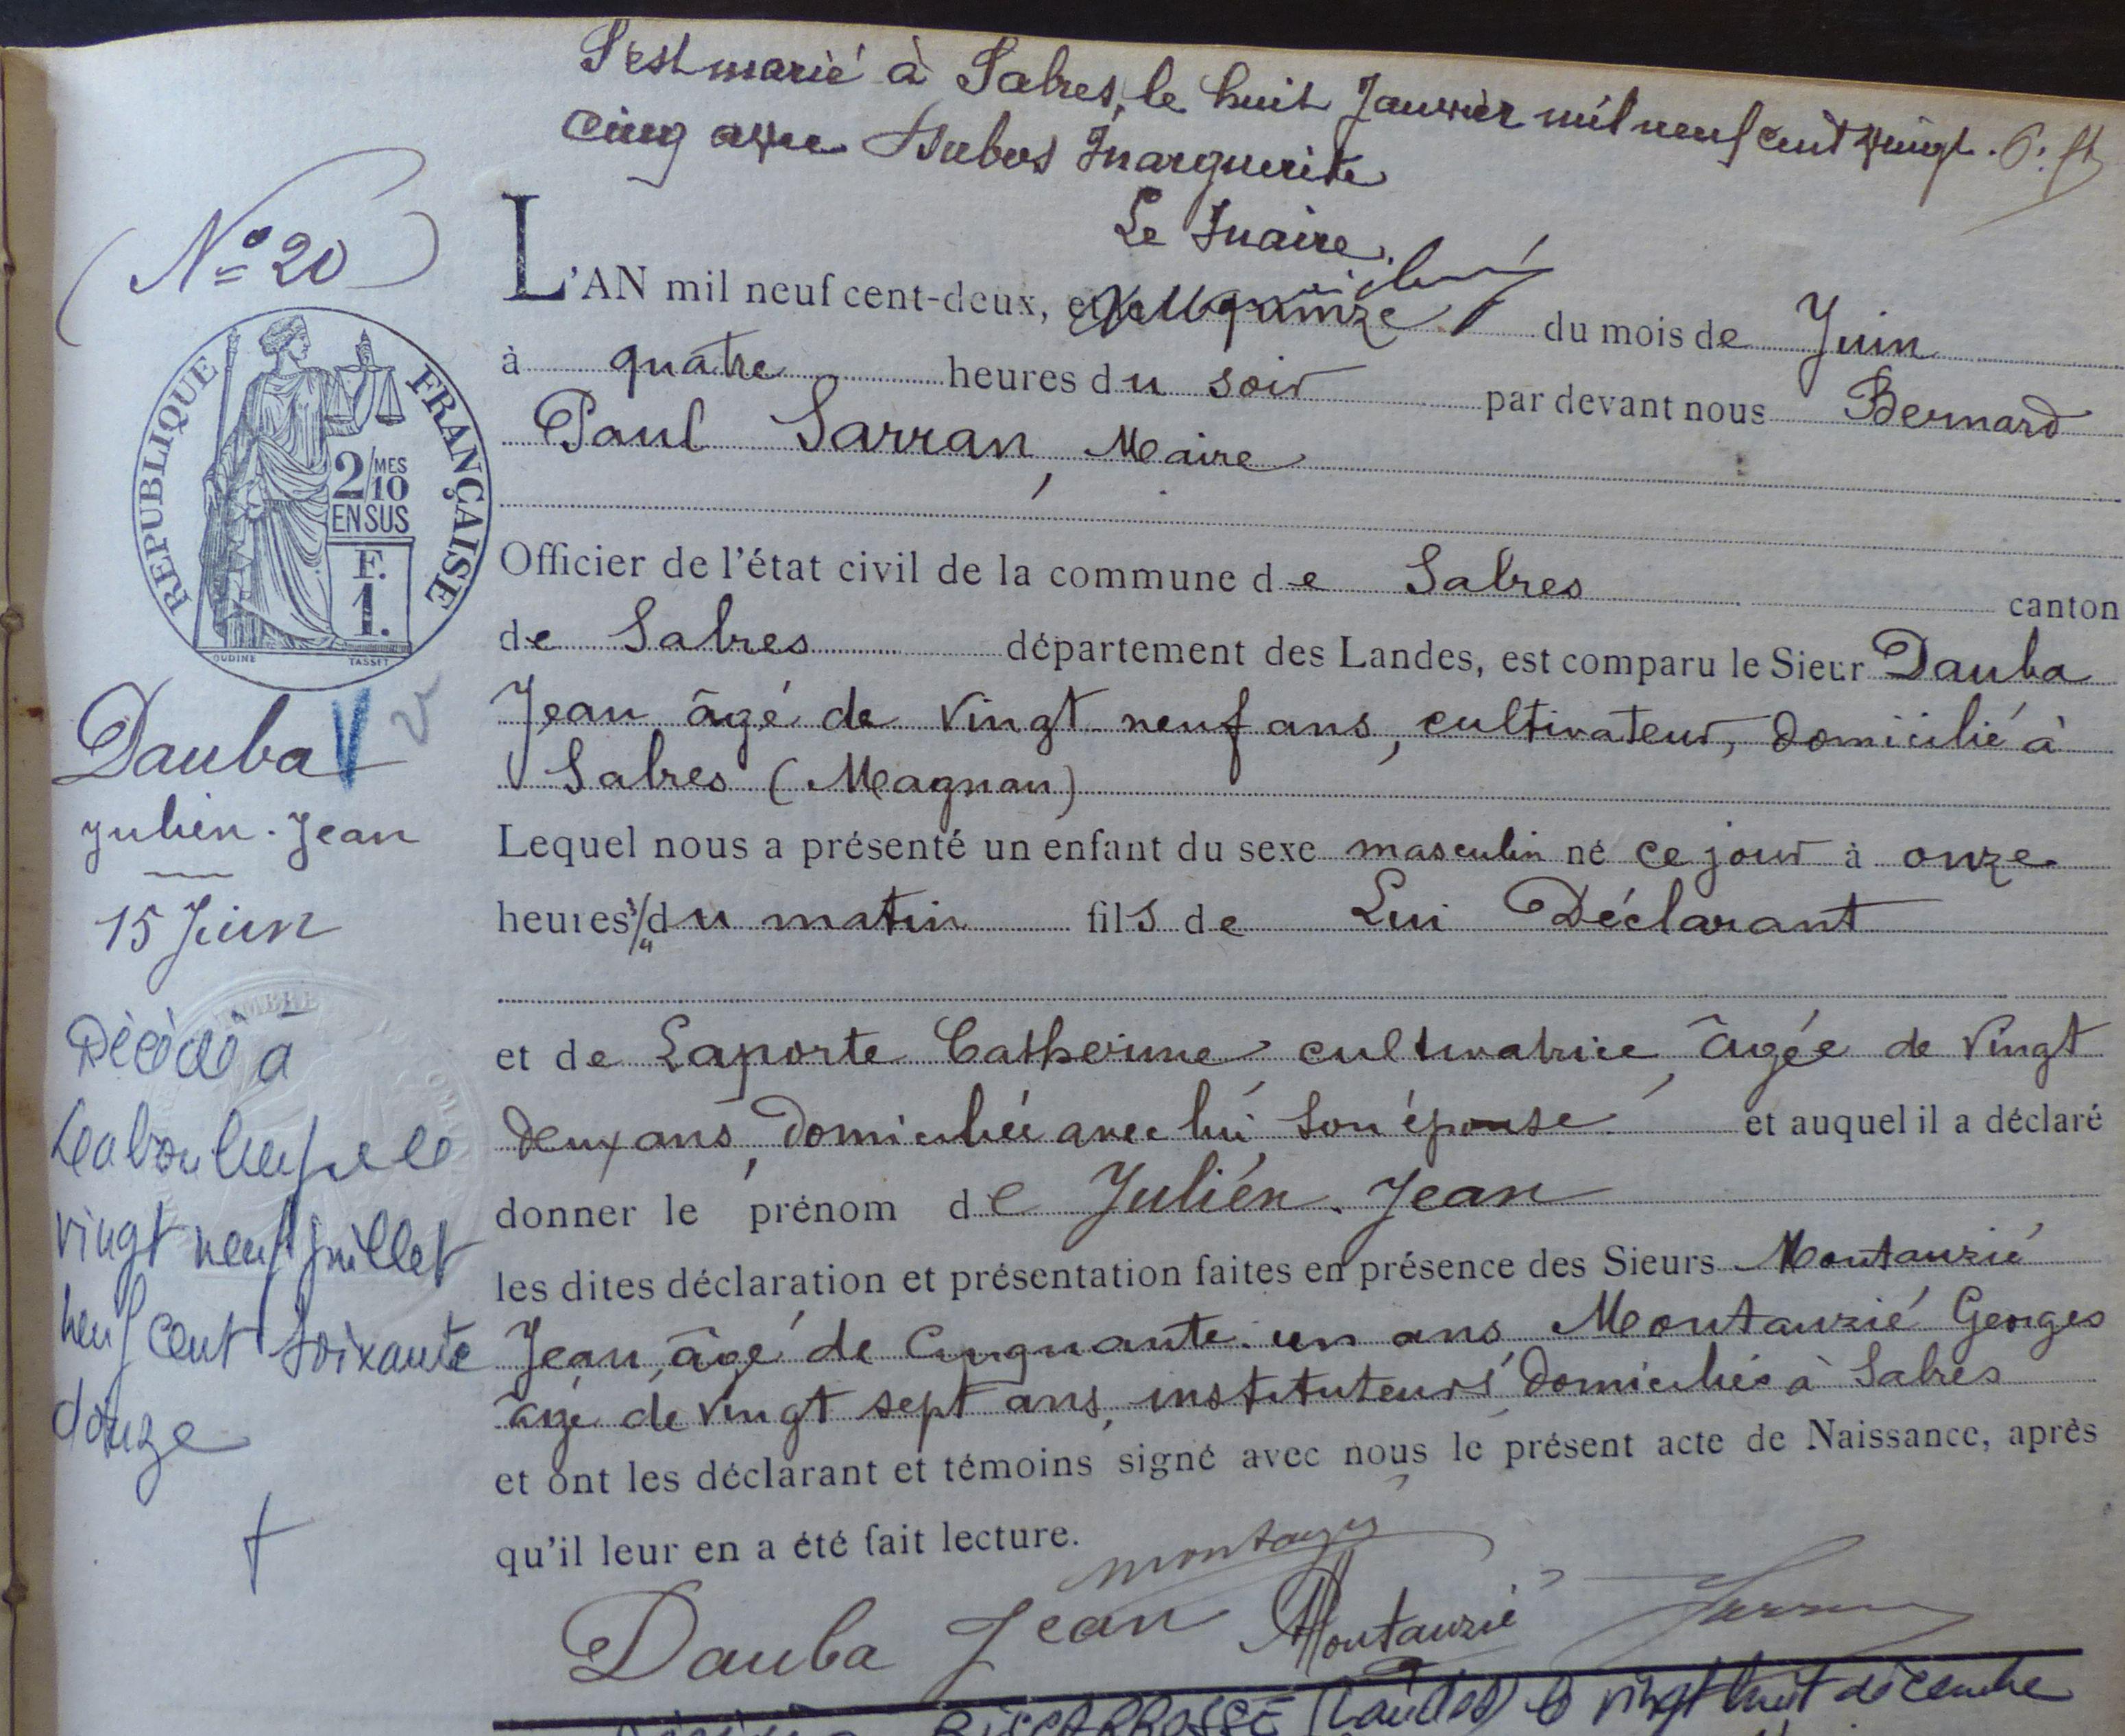 S'est marié à Sabres, le huit Janvier mil neuf cent vingt
cinq avec Dubos Marguerite
Le Maire
(N° 20)
L'AN mil neuf cent-deux, et le quinze du mois de Juin
à quatre heures du soir par devant nous Bernard
Paul Sarran, Maire
REPUBLIQUE FRANÇAISE
2/MES
10
EN SUS
F.
1.
OUDINÉ TASSET
Officier de l'état civil de la commune de Sabres canton
de Sabres département des Landes, est comparu le Sieur Dauba
Jean âgé de vingt neuf ans, cultivateur, domicilié à
Sabres (Magnan)
Lequel nous a présenté un enfant du sexe masculin né ce jour à onze
heures 3/4 du matin fils de Lui Déclarant
et de Laporte Catherine cultivatrice, âgée de vingt
deux ans, domiciliée avec lui, son épouse et auquel il a déclaré
donner le prénom de Julien. Jean
les dites déclaration et présentation faites en présence des Sieurs Montauzié
Jean, âgé de Cinquante un ans, Montauzié Georges
âgé de vingt sept ans, instituteurs, domiciliés à Sabres
et ont les déclarant et témoins signé avec nous le présent acte de Naissance, après
qu'il leur en a été fait lecture.
Dauba
Julien. Jean
15 Juin
Décédé à
Labouheyre le
vingt neuf juillet
neuf cent soixante
douze
Dauba Jean Montauzié Sarran
BISCARROSSE (Landes) le vingt huit décembre